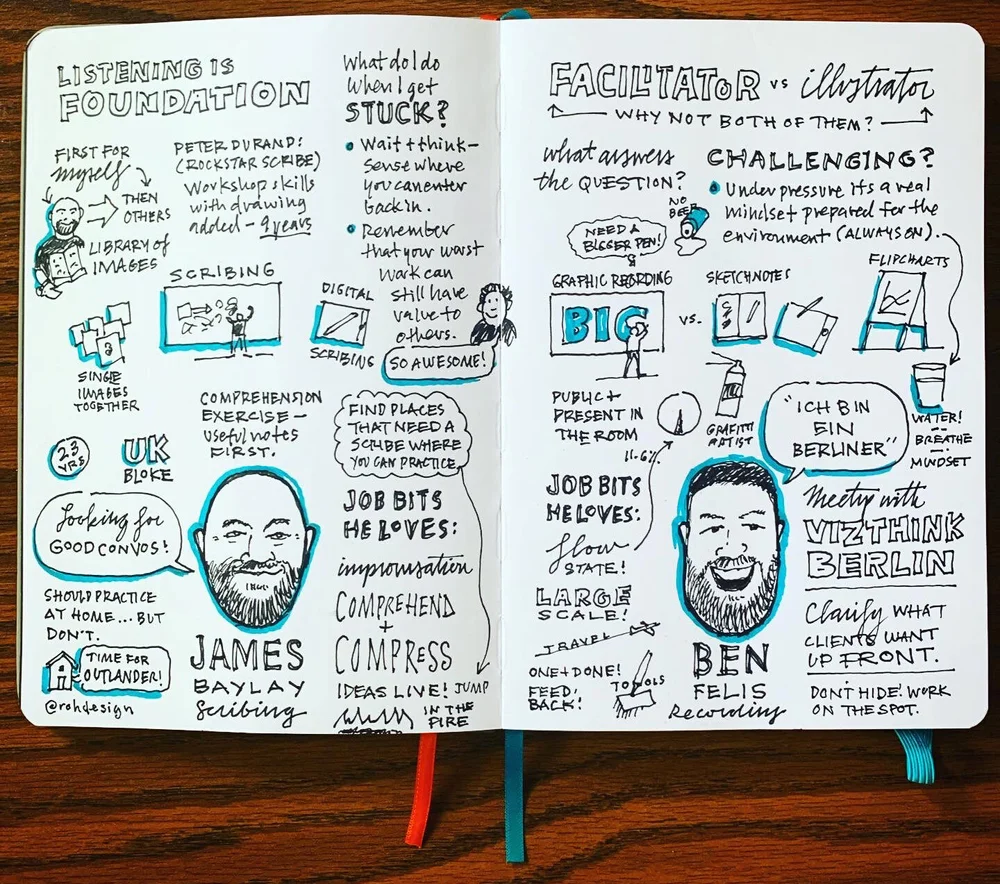 LISTENING IS
FOUNDATION
FIRST FOR
myself
THEN
OTHERS
LIBRARY of
IMAGES
PETER DURAND:
(ROCKSTAR SCRIBE)
Workshop skills
with drawing
added – 9 years
What do I do
when I get
STUCK?
• Wait + think –
sense where
you can enter
back in.
• Remember
that your worst
work can
still have
value to
others.
SO AWESOME!
SCRIBING
DIGITAL
SCRIBING
SINGLE
IMAGES
TOGETHER
COMPREHENSION
EXERCISE –
useful notes
FIRST.
FIND PLACES
THAT NEED A
SCRIBE WHERE
YOU CAN PRACTICE
23
YRS
UK
BLOKE
Looking for
GOOD CONVOS!
SHOULD PRACTICE
AT HOME... BUT
DON'T.
TIME FOR
OUTLANDER!
@rohdesign
JAMES
BAYLAY
Scribing
JOB BITS
HE LOVES:
improvisation
COMPREHEND
+
COMPRESS
IDEAS LIVE!
JUMP
IN THE
FIRE
FACILITATOR vs illustrator
WHY NOT BOTH OF THEM?
what answers
the QUESTION?
NO
BEER
NEED A
BIGGER PEN!
CHALLENGING?
• Under pressure it's a real
mindset prepared for the
environment (ALWAYS ON).
GRAPHIC RECORDING
BIG
vs.
SKETCHNOTES
FLIPCHARTS
PUBLIC +
PRESENT IN
THE ROOM
11.6%
GRAFFITI
ARTIST
"ICH BIN
EIN
BERLINER"
WATER!
BREATHE
MINDSET
JOB BITS
HE LOVES:
flow
STATE!
LARGE
SCALE!
TRAVEL
ONE + DONE!
FEED,
BACK!
TOOLS
BEN
FELIS
Recording
Meetup with
VIZTHINK
BERLIN
Clarify WHAT
CLIENTS WANT
UP FRONT.
DON'T HIDE! WORK
ON THE SPOT.